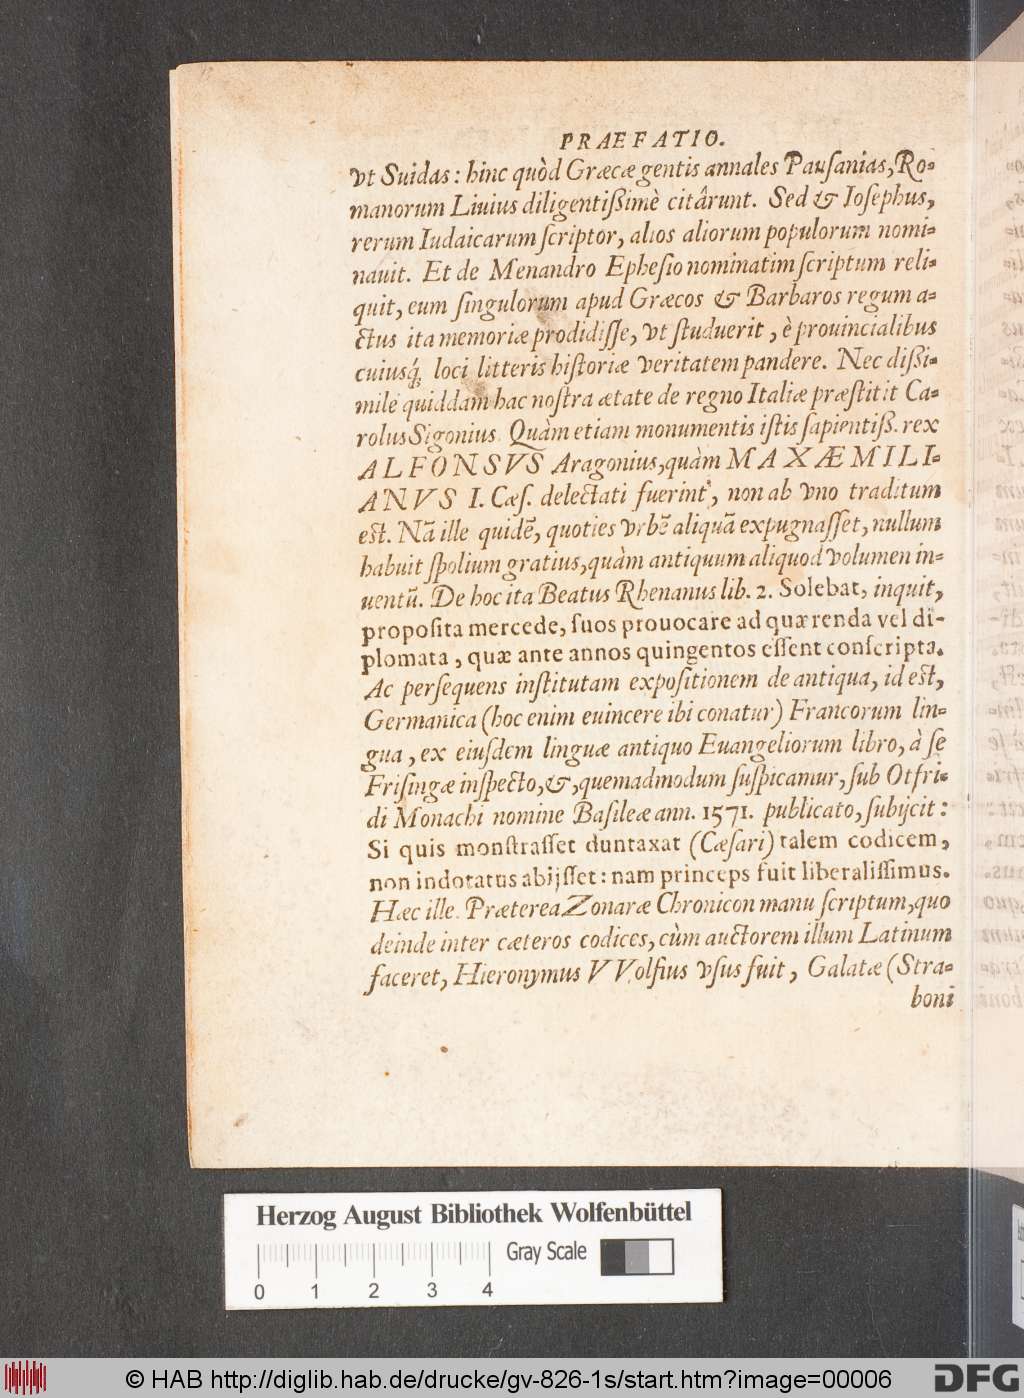 PRAEFATIO.
vt Suidas: hinc quòd Græcæ gentis annales Pauſanias, Ro-
manorum Liuius diligentiſsimè citârunt. Sed & Ioſephus,
rerum Iudaicarum ſcriptor, alios aliorum populorum nomi-
nauit. Et de Menandro Epheſio nominatim ſcriptum reli-
quit, eum ſingulorum apud Græcos & Barbaros regum a-
ctus ita memoriæ prodidiſſe, vt ſtuduerit, è prouincialibus
cuiusq́; loci litteris hiſtoriæ veritatem pandere. Nec diſsi-
mile quiddam hac noſtra ætate de regno Italiæ præſtitit Ca-
rolus Sigonius. Quàm etiam monumentis iſtis ſapientiſs. rex
ALFONSVS Aragonius, quàm MAXÆMILI-
ANVS I. Cæſ. delectati fuerint, non ab vno traditum
est. Nã ille quidẽ, quoties vrbẽ aliquã expugnaſſet, nullum
habuit ſpolium gratius, quàm antiquum aliquod volumen in-
uentũ. De hoc ita Beatus Rhenanus lib. 2. Solebat, inquit,
propoſita mercede, ſuos prouocare ad quærenda vel di-
plomata, quæ ante annos quingentos eſſent conſcripta.
Ac perſequens inſtitutam expoſitionem de antiqua, id est,
Germanica (hoc enim euincere ibi conatur) Francorum lin-
gua, ex eiuſdem linguæ antiquo Euangeliorum libro, à ſe
Friſingæ inſpecto, &, quemadmodum ſuſpicamur, ſub Otfri-
di Monachi nomine Baſileæ ann. 1571. publicato, ſubijcit:
Si quis monſtraſſet duntaxat (Cæſari) talem codicem,
non indotatus abijſſet: nam princeps fuit liberaliſſimus.
Hæc ille. Præterea Zonaræ Chronicon manu ſcriptum, quo
deinde inter cæteros codices, cùm auctorem illum Latinum
faceret, Hieronymus VVolfius vſus fuit, Galatæ (Stra-
boni
Herzog August Bibliothek Wolfenbüttel
Gray Scale
0 1 2 3 4
© HAB http://diglib.hab.de/drucke/gv-826-1s/start.htm?image=00006
DFG